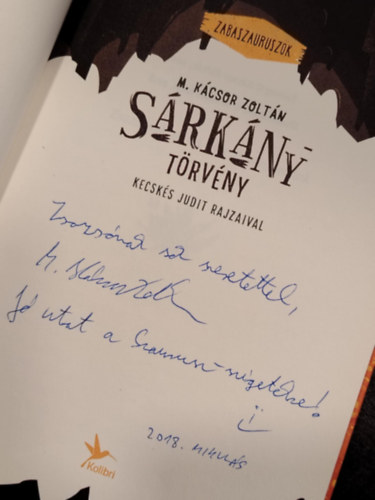 ZABASZAURUSZOK
M. KÁCSOR ZOLTÁN
SÁRKÁNY-
TÖRVÉNY
KECSKÉS JUDIT RAJZAIVAL
sok szeretettel,
M. Kácsor Zoltán
Jó utat a Szaurusz-szigetekre!
2018. MIKULÁS
Kolibri